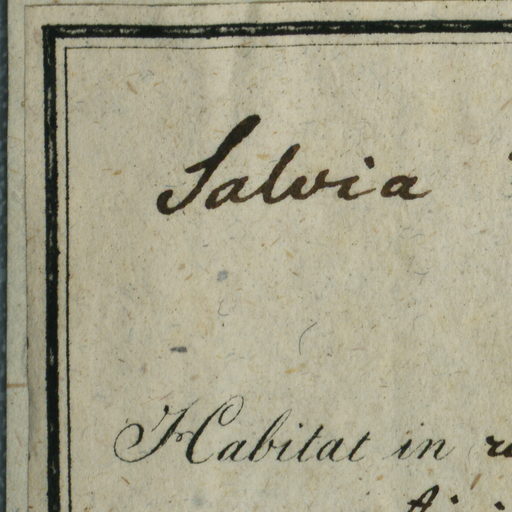 Salvia
Habitat in